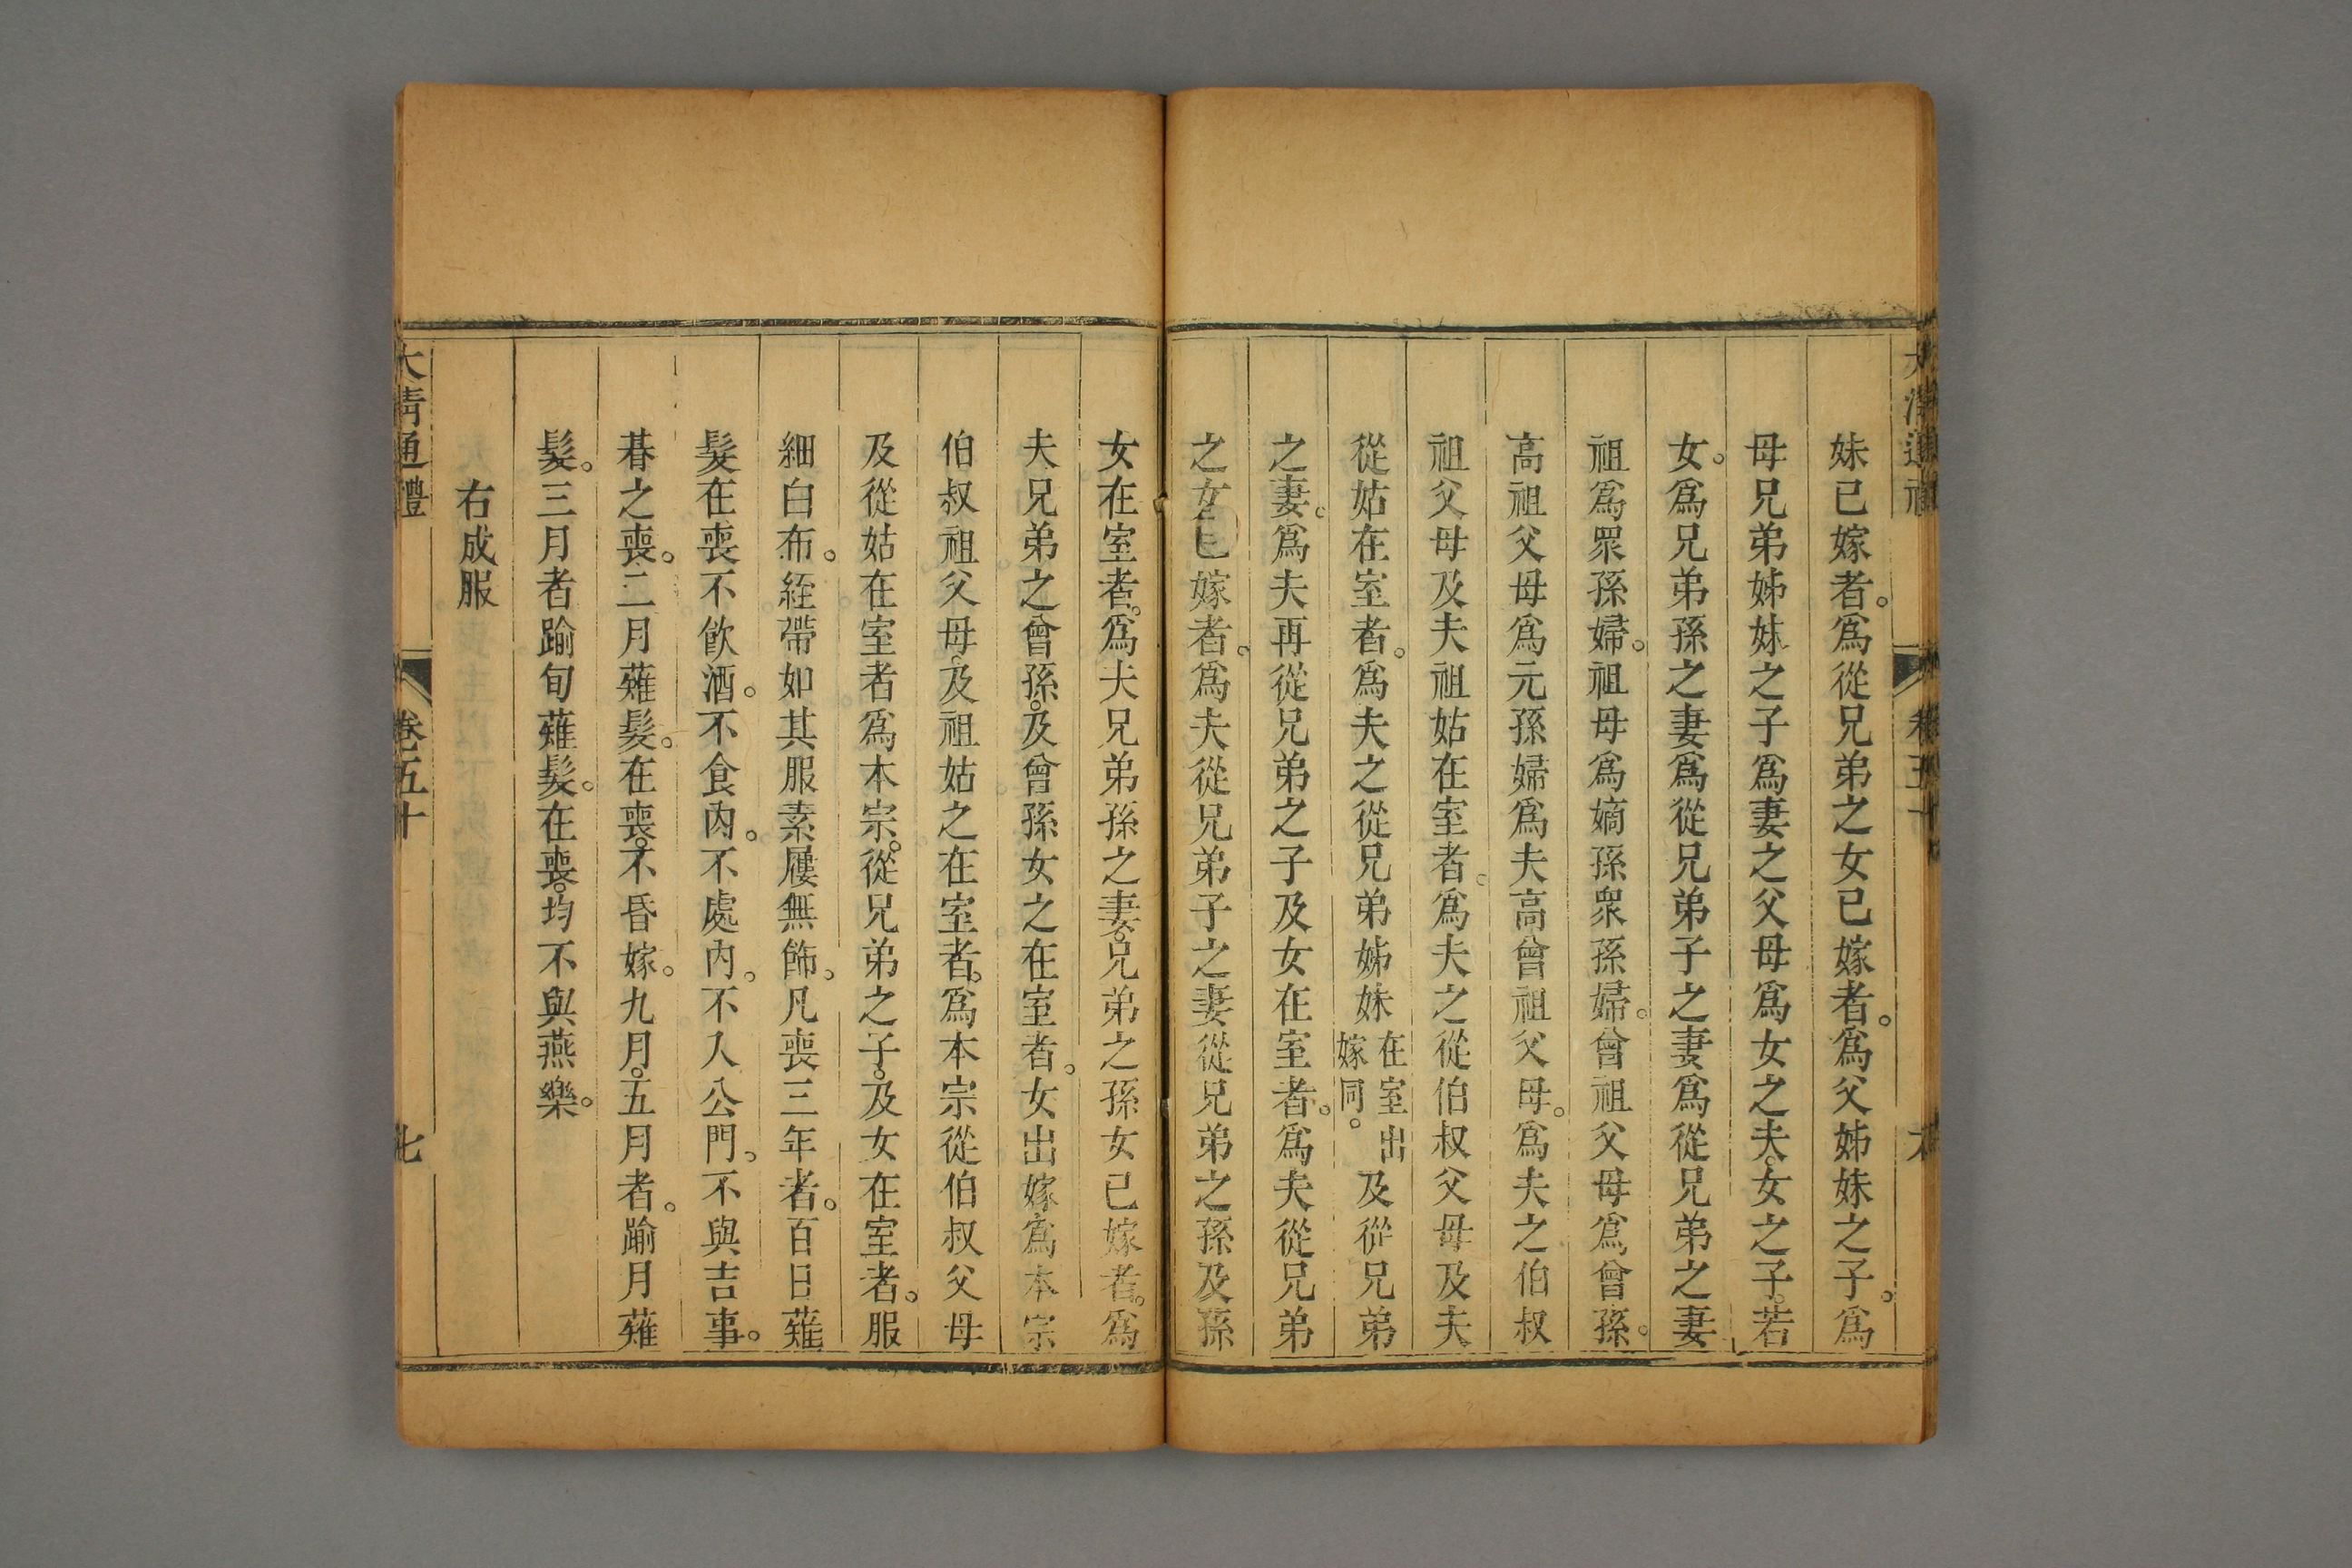 大清通禮 卷五十 六
妹已嫁者。爲從兄弟之女已嫁者。爲父姊妹之子。爲
母兄弟姊妹之子爲妻之父母爲女之夫。女之子。若
女。爲兄弟孫之妻爲從兄弟子之妻爲從兄弟之妻
祖爲眾孫婦。祖母爲嫡孫衆孫婦。曾祖父母爲曾孫。
高祖父母爲元孫婦爲夫高曾祖父母。爲夫之伯叔
祖父母及夫祖姑在室者。爲夫之從伯叔父母及夫
從姑在室者。爲夫之從兄弟姊妹在室出嫁同。及從兄弟
之妻。爲夫再從兄弟之子及女在室者。爲夫從兄弟
之女已嫁者。爲夫從兄弟子之妻從兄弟之孫及孫
女在室者。爲夫兄弟孫之妻。兄弟之孫女已嫁者。爲
夫兄弟之曾孫。及曾孫女之在室者。女出嫁爲本宗
伯叔祖父母。及祖姑之在室者。爲本宗從伯叔父母
及從姑在室者爲本宗。從兄弟之子。及女在室者。服
細白布。絰帶如其服素屨無飾。凡喪三年者。百日薙
髮在喪不飮酒。不食肉。不處內。不入公門。不與吉事。
朞之喪。二月薙髮。在喪。不昏嫁。九月。五月者。踰月薙
髮。三月者踰旬薙髮。在喪。均不與燕樂。
右成服
大清通禮 卷五十 七